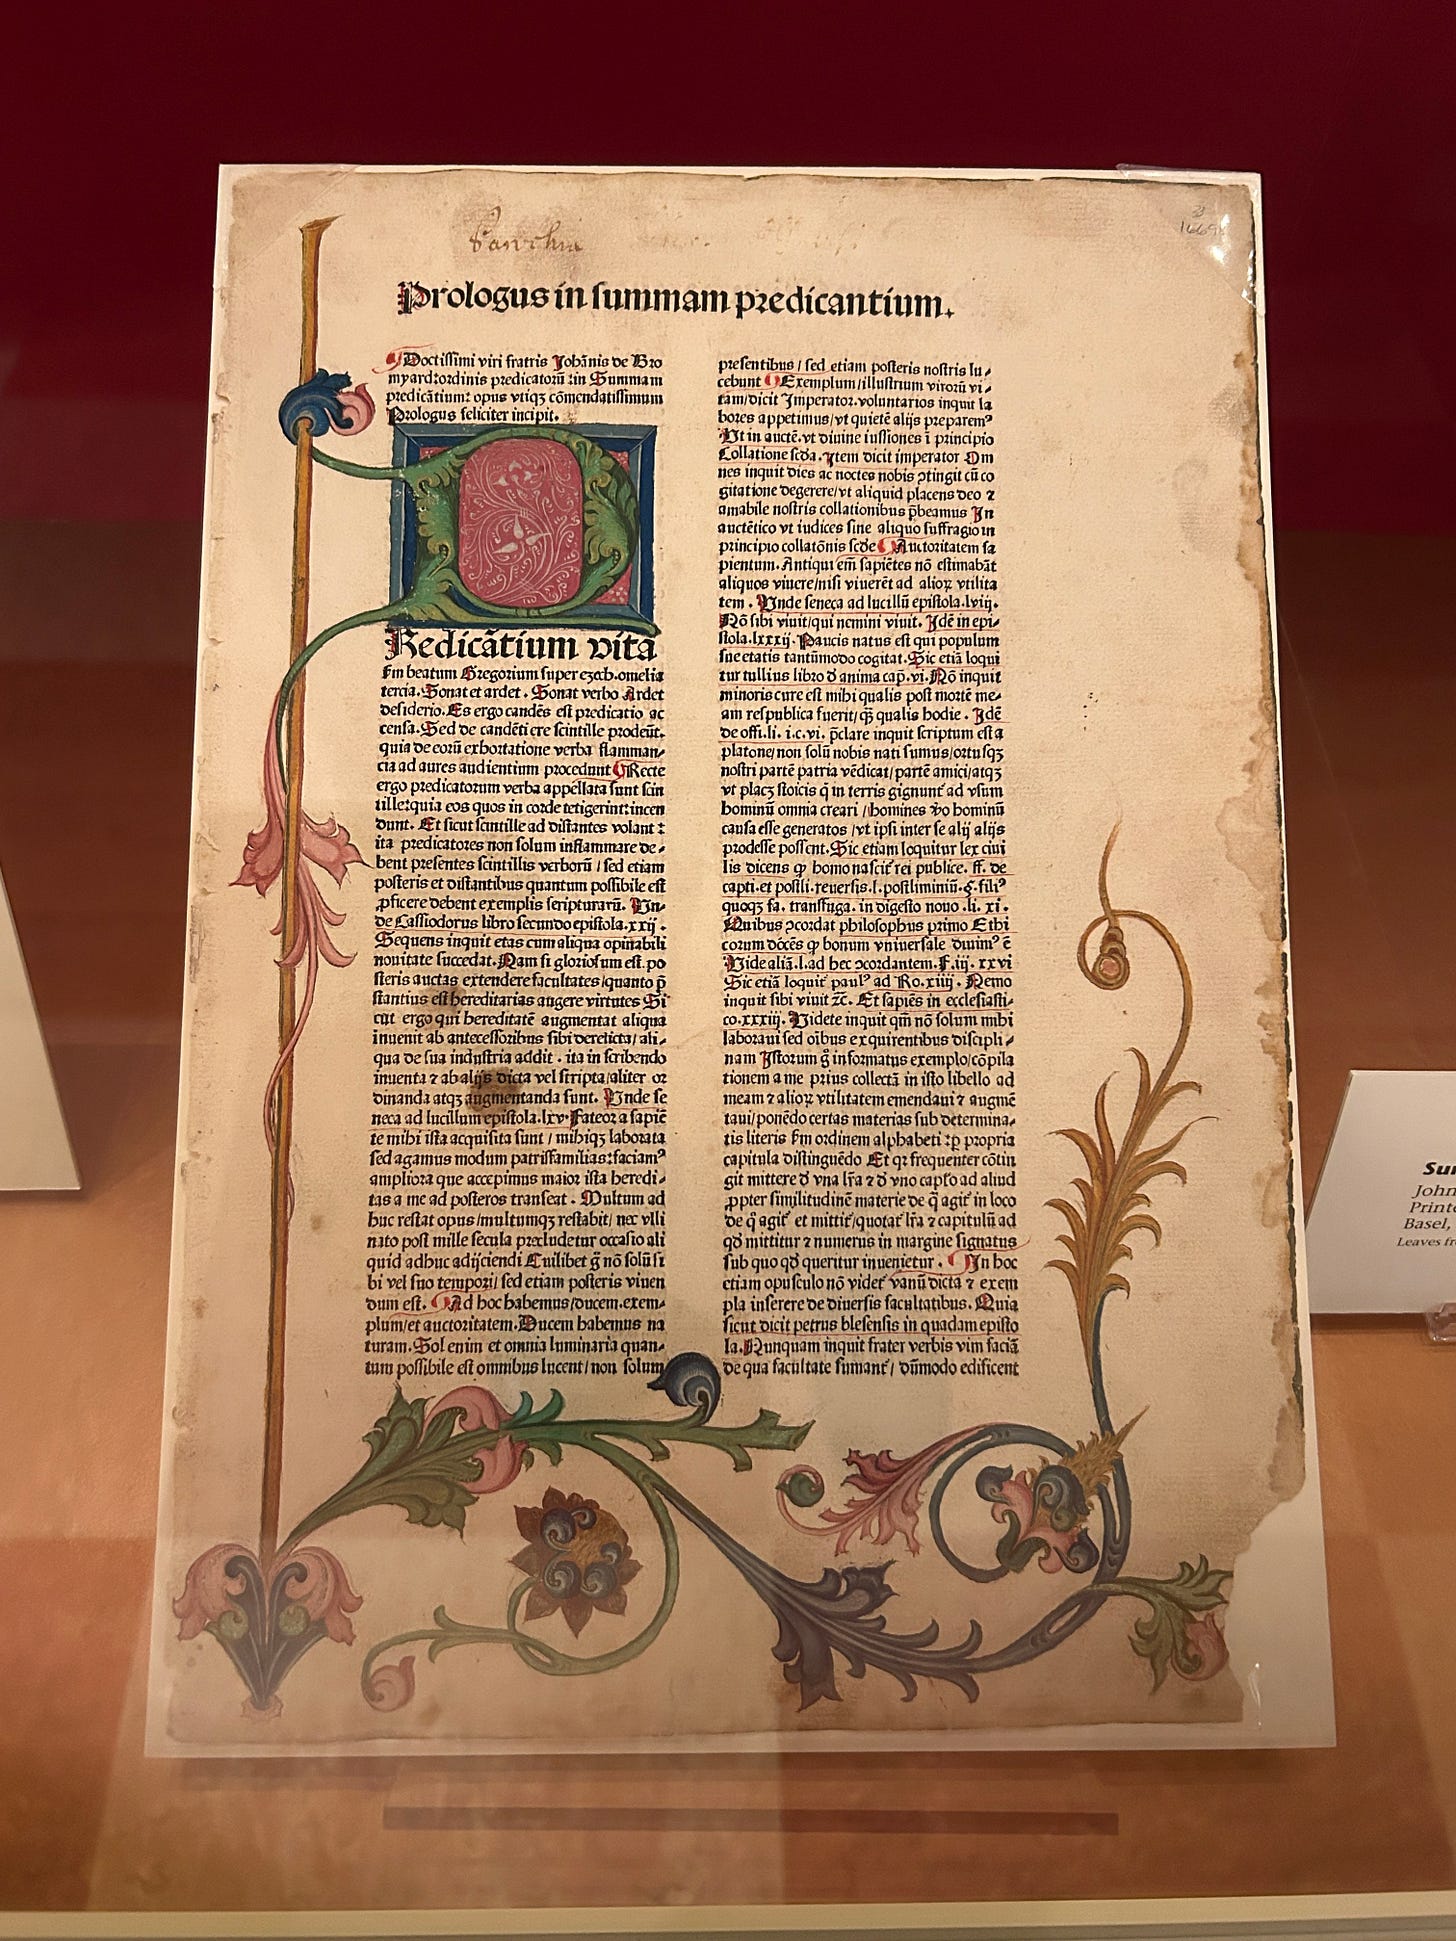 Prologus in summam predicantium.
Doctissimi viri fratris Johānis de Bro
myard: ordinis predicatorū: in Summam
predicātium: opus vtiqꝫ cōmendatissimum
Prologus feliciter incipit.
Redicātium vita
ſm beatum Gregorium super ezech. omelia
tercia. Sonat et ardet. Sonat verbo Ardet
desiderio. Es ergo candēs est predicatio ac
censa. Sed de candēti ere scintille prodeūt.
quia de eorū exhortatione verba flamman-
cia ad aures audientium procedunt Recte
ergo predicatorum verba appellata sunt scin
tille: quia eos quos in corde tetigerint: incen
dunt. Et sicut scintille ad distantes volant:
ita predicatores non solum inflammare de-
bent presentes scintillis verborū / sed etiam
posteris et distantibus quantum possibile est
ꝓficere debent exemplis scripturarū. Vn-
de Cassiodorus libro secundo epistola. xxij.
Sequens inquit etas cum aliqua opinabili
nouitate succedat. Nam si gloriosum est. po
steris auctas extendere facultates / quanto p̄
stantius est hereditarias augere virtutes Si
cut ergo qui hereditatē augmentat aliqua
inuenit ab antecessoribus sibi derelicta / ali-
qua de sua industria addit. ita in scribendo
inuenta ⁊ ab alijs dicta vel scripta / aliter or
dinanda atqꝫ augmentanda sunt. Vnde se
neca ad lucillum epistola. lxv. Fateor a sapiē
te mihi ista acquisita sunt / mihiqꝫ laborata
sed agamus modum patrisfamilias: faciamꝰ
ampliora que accepimus maior ista heredi-
tas a me ad posteros transeat. Multum ad
huc restat opus / multumqꝫ restabit / nec vlli
nato post mille secula precludetur occasio ali
quid adhuc adijciendi Cuilibet ḡ nō solū si
bi vel suo tempori / sed etiam posteris viuen
dum est. Ad hoc habemus / ducem. exem-
plum / et auctoritatem. Ducem habemus na
turam. Sol enim et omnia luminaria quan-
tum possibile est omnibus lucent / non solum
presentibus / sed etiam posteris nostris lu-
cebunt Exemplum / illustrium virorū vi-
tam / dicit Imperator. voluntarios inquit la
bores appetimus / vt quietē alijs preparemꝰ
Vt in auctē. vt diuine iussiones ī principio
Collatione scđa. Item dicit imperator Om
nes inquit dies ac noctes nobis ꝯtingit cū co
gitatione degerere / vt aliquid placens deo ⁊
amabile nostris collationibus p̄beamus In
auctētico vt iudices sine aliquo suffragio in
principio collatōnis scđe Auctoritatem sa
pientum. Antiqui em̄ sapiētes nō estimabāt
aliquos viuere / nisi viuerēt ad alioꝝ vtilita
tem. Vnde seneca ad lucillū epistola. lviij.
Nō sibi viuit / qui nemini viuit. Idē in epi-
stola. lxxxij. Paucis natus est qui populum
sue etatis tantūmodo cogitat. Sic etiā loqui
tur tullius libro đ anima cap̄. vi. Nō inquit
minoris cure est mihi qualis post mortē me-
am respublica fuerit / qꝫ qualis hodie. Idē
de offi. li. i. c. vi. p̄clare inquit scriptum est a
platone / non solū nobis nati sumus / ortusqꝫ
nostri partē patria vēdicat / partē amici / atqꝫ
vt placꝫ stoicis q̄ in terris gignunt ad vsum
hominū omnia creari / homines v̄o hominū
causa esse generatos / vt ipsi inter se alij alijs
prodesse possent. Sic etiam loquitur lex ciui
lis dicens ꝙ homo nascit rei publice. ff. de
capti. et postli. reuersis. l. postliminiū. §. filiꝰ
quoqꝫ fa. transfuga. in digesto nouo. li. xi.
Quibus ꝯcordat philosophus primo Ethi
corum docēs ꝙ bonum vniuersale diuinꝰ ē
Vide aliā. l. ad hec ꝯcordantem. F. iij. xxvi
Sic etiā loquit paulꝰ ad Ro. xiiij. Nemo
inquit sibi viuit ⁊c̄. Et sapiēs in ecclesiasti-
co. xxxiij. Videte inquit qm̄ nō solum mihi
laboraui sed oībus exquirentibus discipli-
nam Istorum g̊ informatus exemplo / cōpila
tionem a me prius collectā in isto libello ad
meam ⁊ alioꝝ vtilitatem emendaui ⁊ augmē
taui / ponēdo certas materias sub determina-
tis literis ſm ordinem alphabeti: ꝑ propria
capitula distinguēdo Et qꝛ frequenter cōtin
git mittere đ vna lr̄a ⁊ đ vno capľo ad aliud
ꝓpter similitudinē materie de q̄ agit in loco
de q̄ agit et mittit / quotat lr̄a ⁊ capitulū ad
qđ mittitur ⁊ numerus in margine signatus
sub quo qđ queritur inuenietur. In hoc
etiam opusculo nō videt vanū dicta ⁊ exem
pla inserere de diuersis facultatibus. Quia
sicut dicit petrus blesensis in quadam episto
la. Nunquam inquit frater verbis vim faciā
de qua facultate sumant / dūmodo edificent
John
Basel,